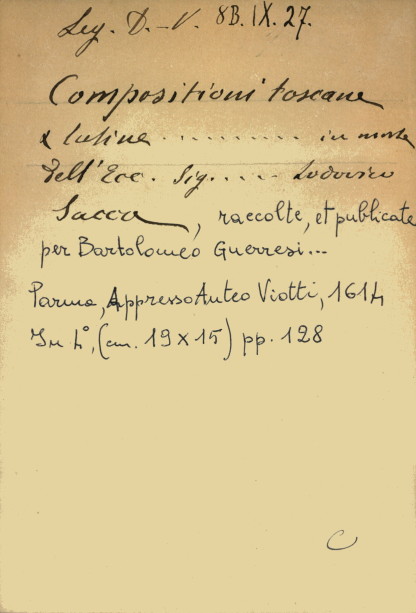 Leg. D.-V. 8B.IX.27.
Compositioni toscane
& latine .......... in morte
dell'Ecc. Sig. .... Lodovico
Sacca, raccolte, et publicate
per Bartolomeo Guerresi...
Parma, Appresso Anteo Viotti, 1614
In 4°, (cm. 19x15) pp. 128
C